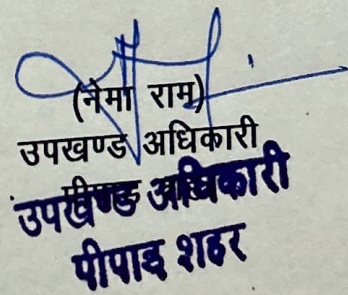 (नेमा राम)
उपखण्ड अधिकारी
उपखण्ड अधिकारी
पीपाड़ शहर